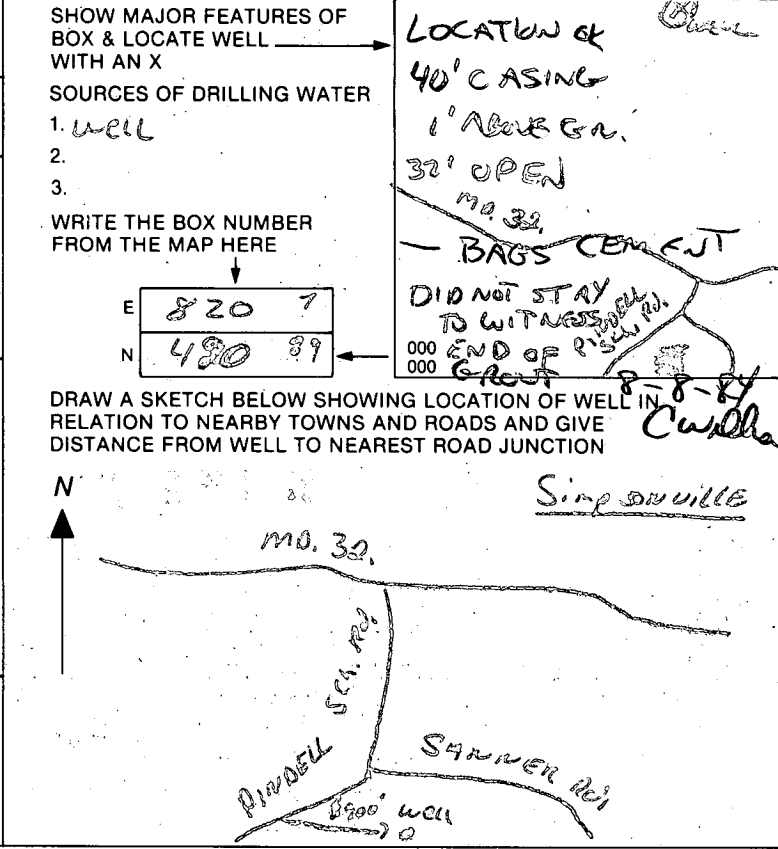 SHOW MAJOR FEATURES OF
BOX & LOCATE WELL
WITH AN X
SOURCES OF DRILLING WATER
1. well
2.
3.
WRITE THE BOX NUMBER
FROM THE MAP HERE
E 820 7
N 480 89
LOCATION OK
40' CASING
1' ABOVE GR.
32' OPEN
MD. 32.
— BAGS CEMENT
DID NOT STAY
TO WITNESS
PINDELL
SCH. RD.
000 END OF
000 GROUT
8-8-84
DRAW A SKETCH BELOW SHOWING LOCATION OF WELL IN
RELATION TO NEARBY TOWNS AND ROADS AND GIVE
DISTANCE FROM WELL TO NEAREST ROAD JUNCTION
N
Simpsonville
MD. 32.
PINDELL SCH. RD.
SANNER RD.
900' well